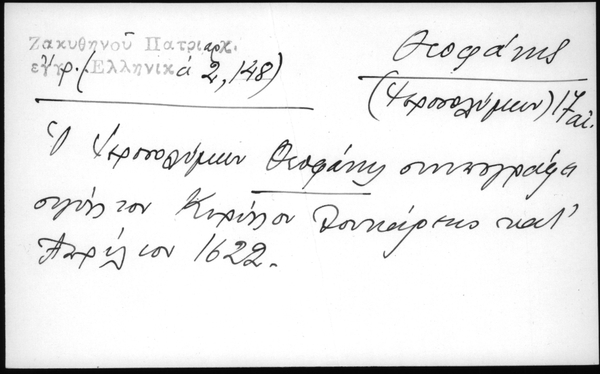 Ζακυθηνοῦ Πατριαρχ.
ἔγγρ. (Ἑλληνικά 2, 148)
Θεοφάνης
(Ἱεροσολύμων) 17 αἰ.
Ὁ Ἱεροσολύμων Θεοφάνης συνυπογράφει
σιγίλ. τοῦ Κυρίλλου Λουκάρεως κατ'
Ἀπρίλιον 1622.